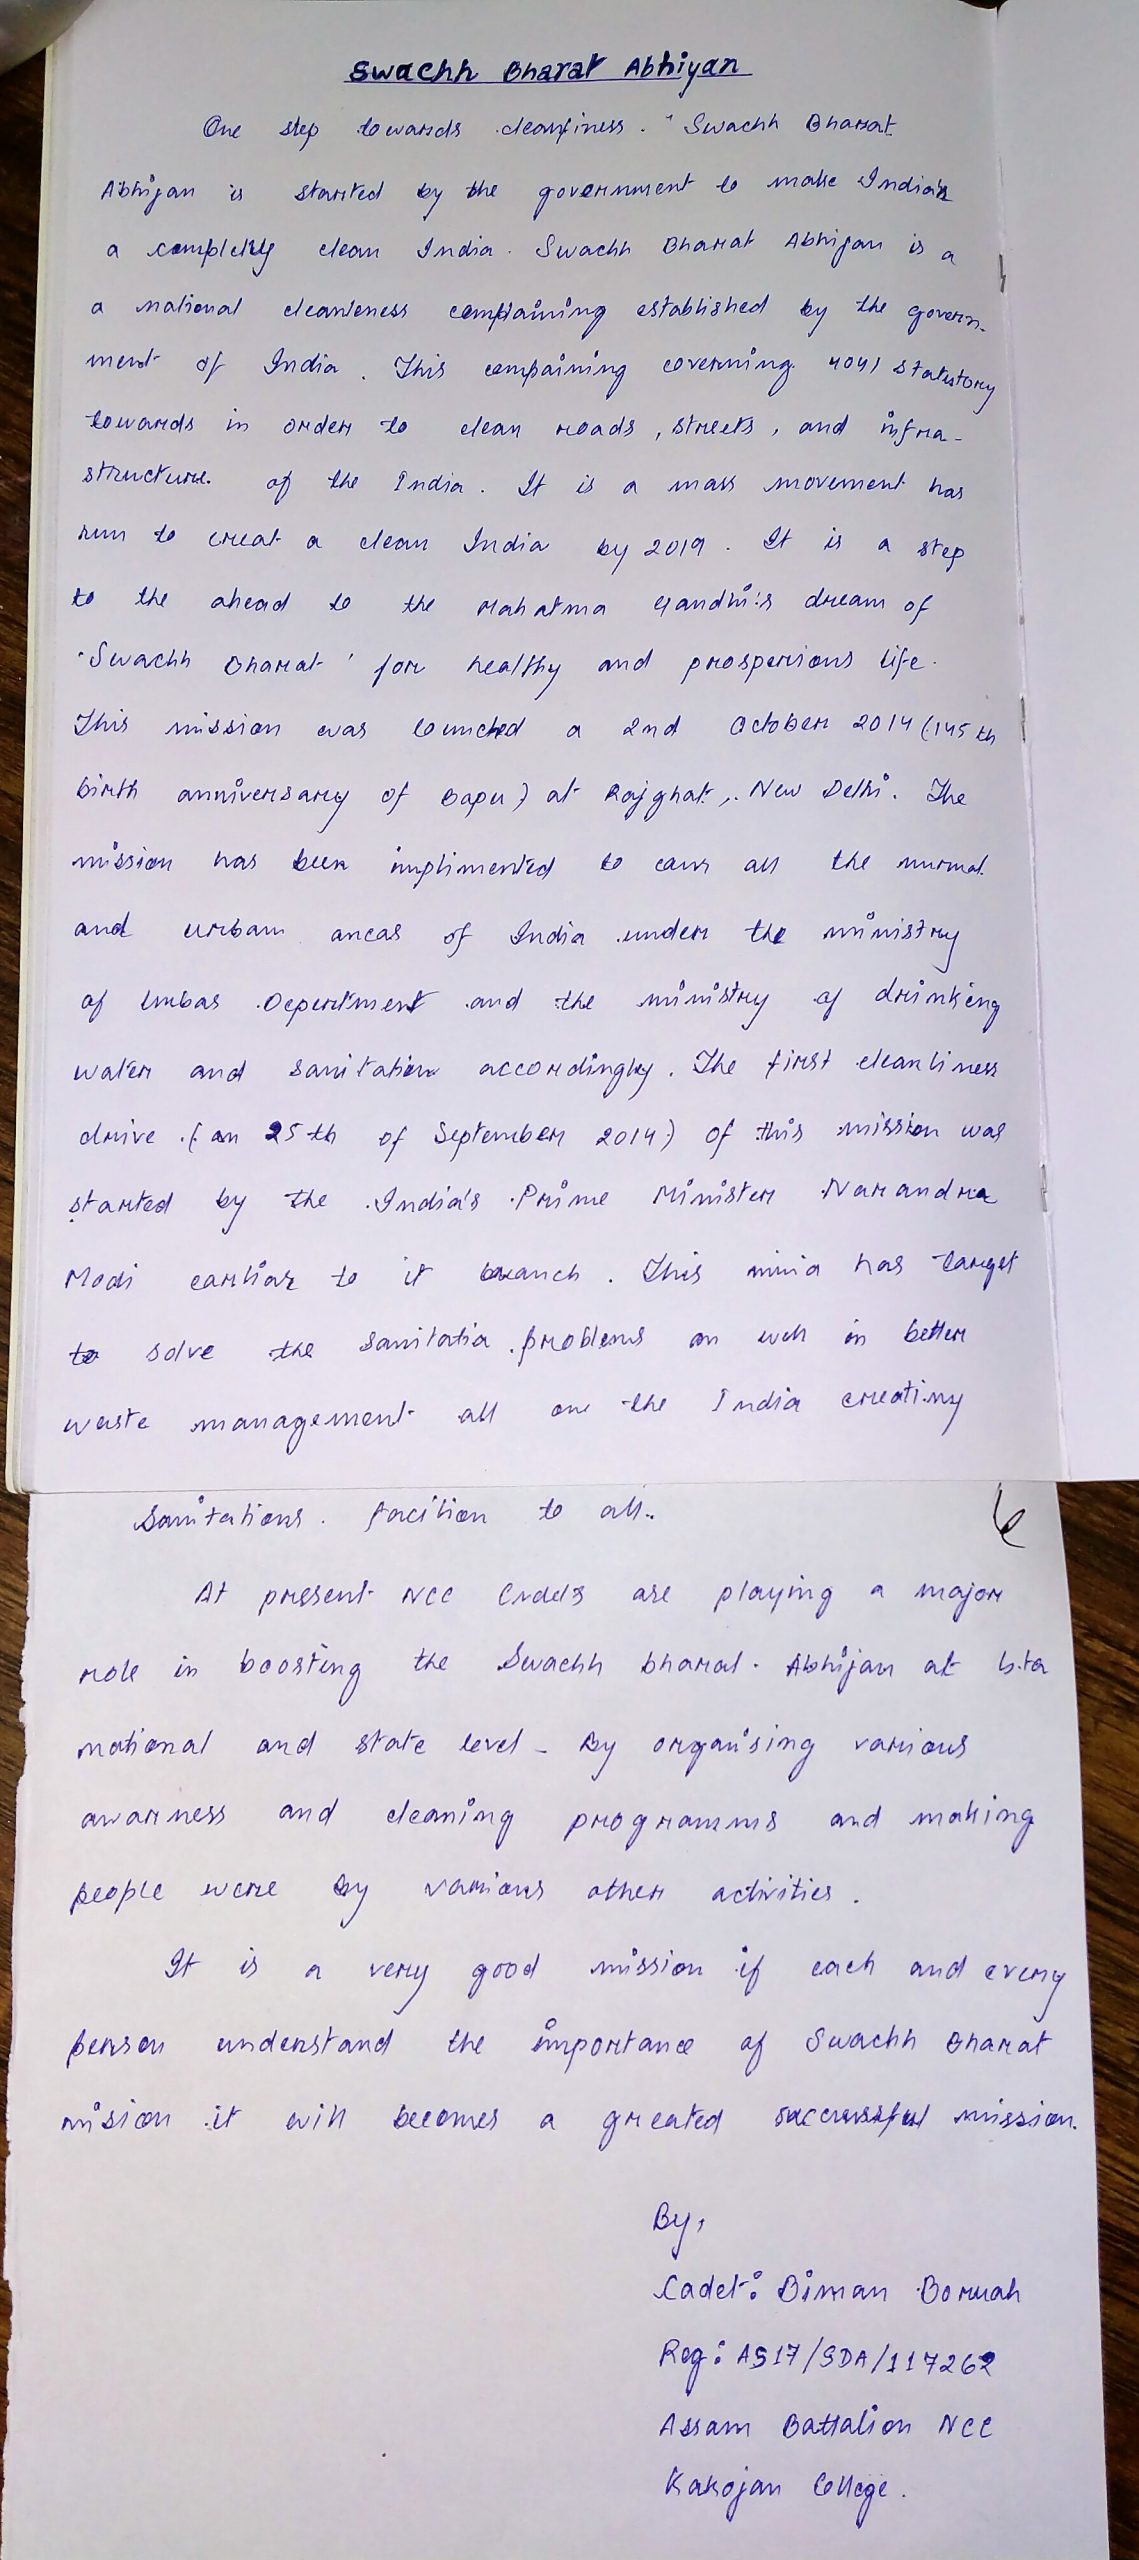 Swachh Bharat Abhiyan
One step towards cleanliness. "Swachh Bharat
Abhijan is started by the government to make India's
a completely clean India. Swachh Bharat Abhijan is a
a national cleanleness complaining established by the govern-
ment of India. This compaining coverning 4041 statutory
towards in order to clean roads, streets, and infra-
structure. of the India. It is a mass movement has
run to creat a clean India by 2019. It is a step
to the ahead to the Mahatma Gandhi's dream of
'Swachh Bharat' for healthy and prosperious life.
This mission was lounched a 2nd October 2014 (145th
birth anniversary of Bapu) at Rajghat,. New Delhi. The
mission has been implimented to all the
and urban areas of India under the ministry
of Urbas Depertment and the ministry of drinking
water and sanitation accordingly. The first cleanliness
drive (an 25th of September 2014) of this mission was
started by the India's Prime Minister Narandra
Modi to it branch. This has target
to solve the sanitatia problems in better
waste management all the India creating
Sanitations. to all..
At present NCC are playing a major
role in boosting the Swachh bharat. Abhijan at
national and state level - By organising various
awarness and cleaning programms and making
people were by various other activities.
It is a very good mission if each and every
person understand the importance of Swachh Bharat
mision it will becomes a greated successful mission.
By,
Cadet: Biman Boruah
Reg: AS17/SDA/117262
Assam Battalion NCC
Kakojan College.